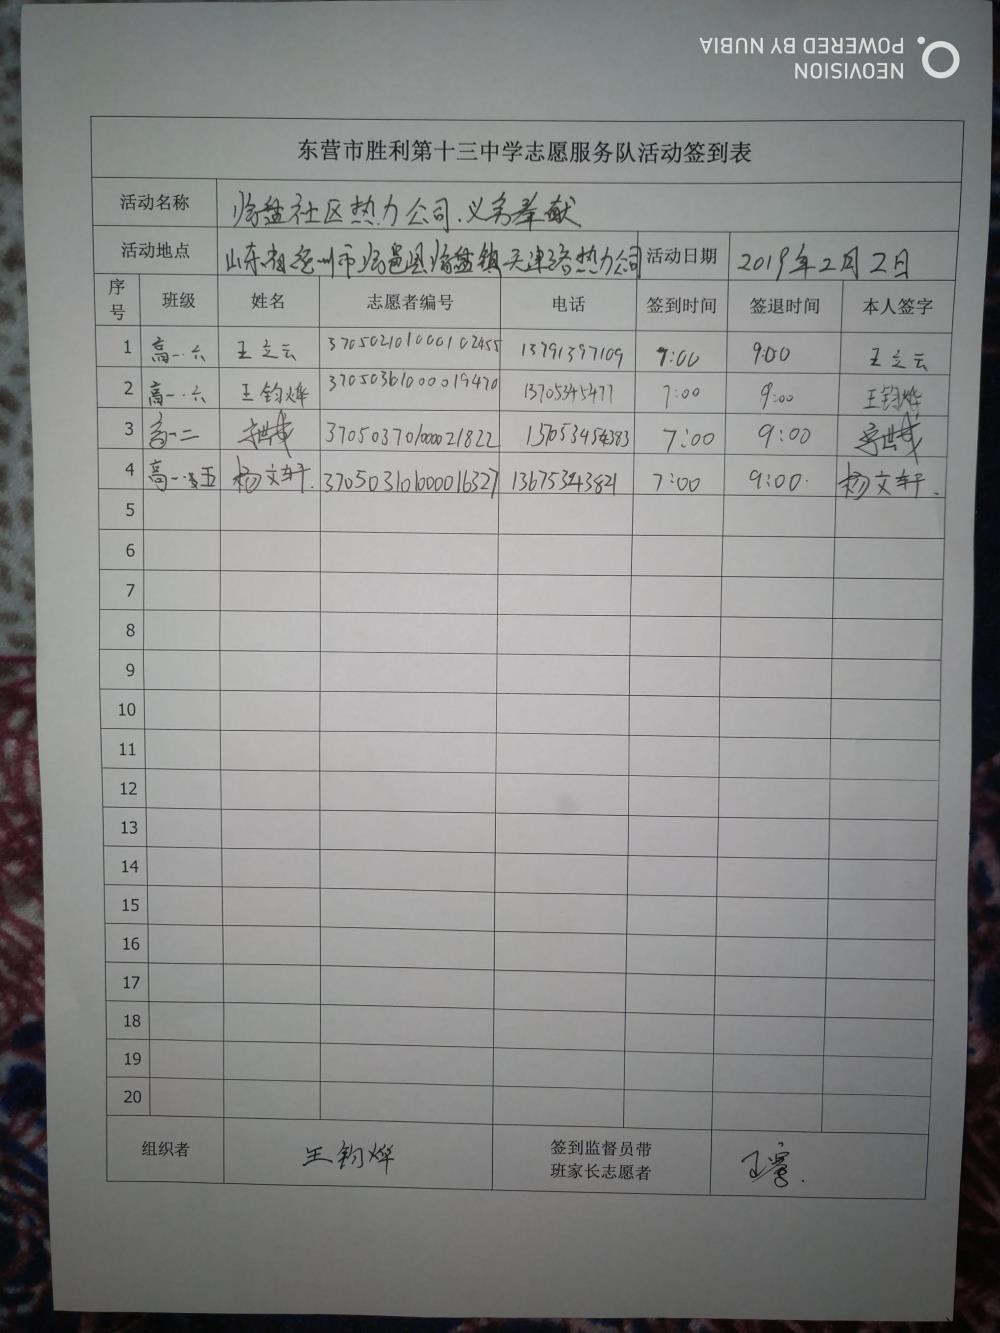 NEOVISION
POWERED BY NUBIA
东营市胜利第十三中学志愿服务队活动签到表
活动名称 临盘社区热力公司.义务奉献
活动地点 山东省德州市临邑县临盘镇天津路热力公司 活动日期 2019年2月2日
序号 班级 姓名 志愿者编号 电话 签到时间 签退时间 本人签字
1 高一.六 王立云 370502101000102455 13791397109 7:00 9:00 王立云
2 高一.六 王钧烨 37050361000019470 13705345477 7:00 9:00 王钧烨
3 高一二 370503701000021822 15053454383 7:00 9:00
4 高一.五 杨文轩. 370503101000016327 13675343821 7:00 9:00. 杨文轩.
5
6
7
8
9
10
11
12
13
14
15
16
17
18
19
20
组织者 王钧烨 签到监督员带 王
班家长志愿者